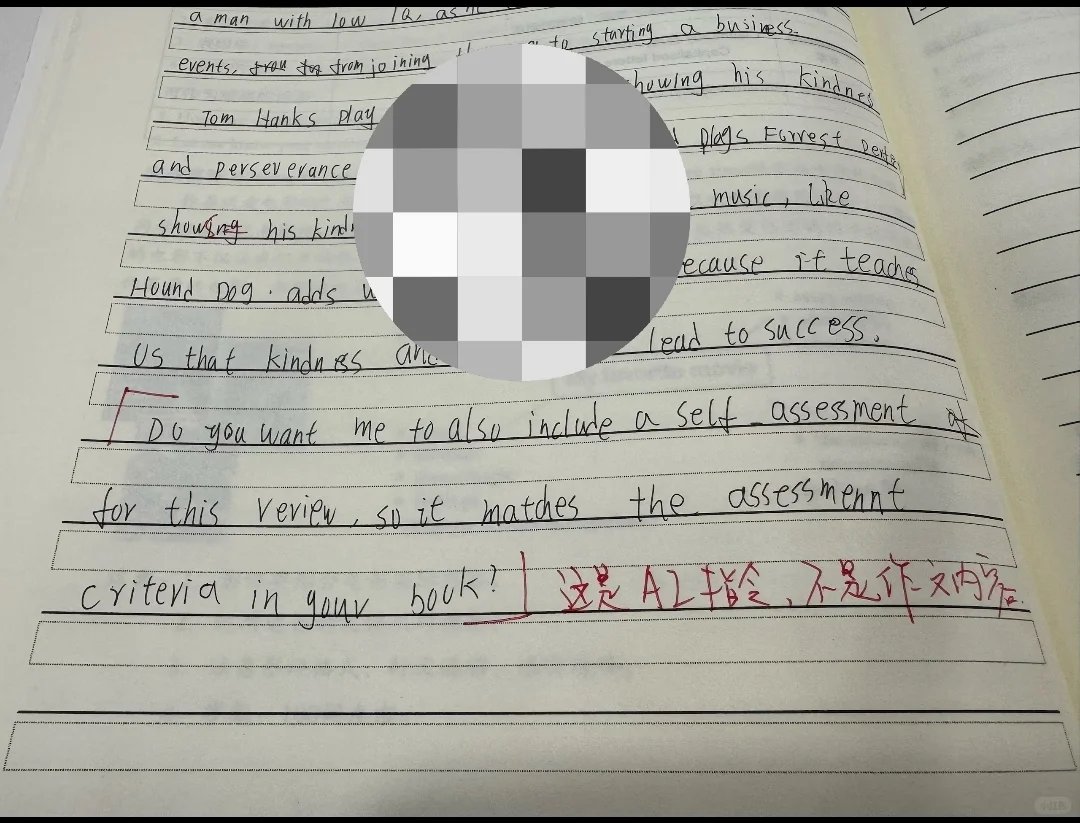 a man with low IQ, as
events, from joining to starting a business.
Tom Hanks play showing his kindnes
and perseverance plays Forrest
showing his kind music, like
Hound Dog. adds because it teaches
us that kindness and lead to success.
Do you want me to also include a self-assessment
for this review, so it matches the assessmennt
criteria in your book? 这是AI指令,不是作文内容.